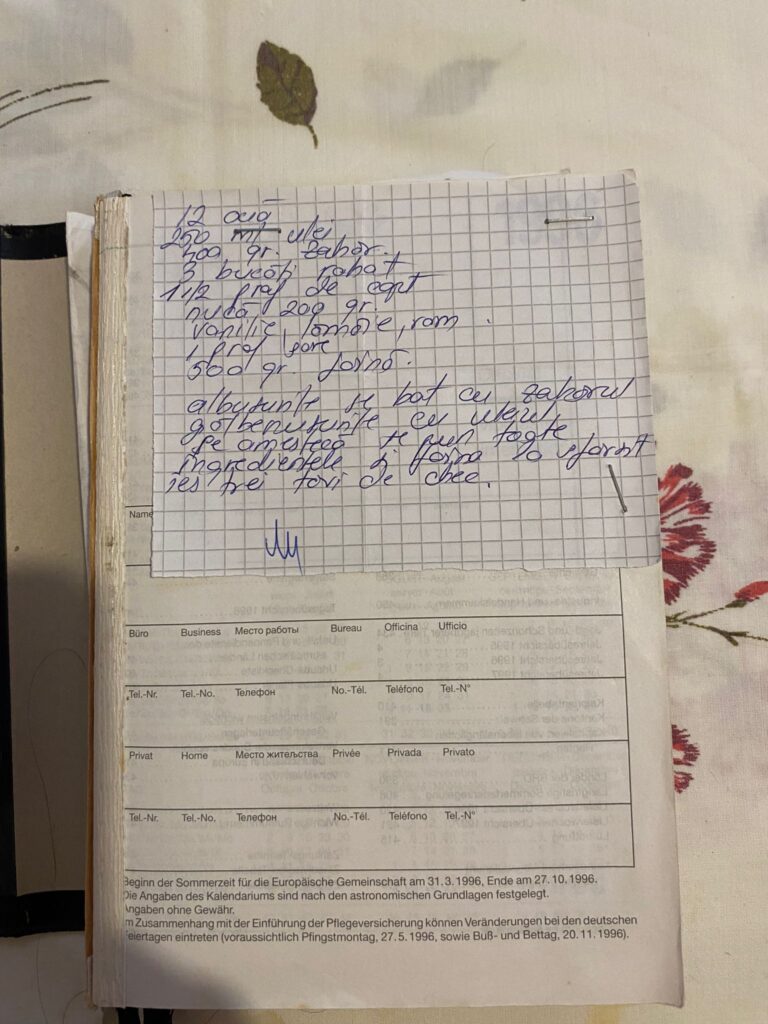 12 ouă
250 ml ulei
400 gr. zahăr.
3 bucăți rahat
1 1/2 praf de copt
nucă 200 gr.
vanilie, lămâie, rom.
1 praf sare
500 gr. făină.
albușurile se bat cu zahărul
gălbenușurile cu uleiul
se amestecă se pun toate
ingredientele și făina la sfârșit
ies trei tăvi de chec.
Name
Büro Business Место работы Bureau Officina Ufficio
Tel.-Nr. Tel.-No. Телефон No.-Tél. Teléfono Tel.-N°
Privat Home Место жительства Privée Privada Privato
Tel.-Nr. Tel.-No. Телефон No.-Tél. Teléfono Tel.-N°
Beginn der Sommerzeit für die Europäische Gemeinschaft am 31.3.1996, Ende am 27.10.1996.
Die Angaben des Kalendariums sind nach den astronomischen Grundlagen festgelegt.
Angaben ohne Gewähr.
m Zusammenhang mit der Einführung der Pflegeversicherung können Veränderungen bei den deutschen
eiertagen eintreten (voraussichtlich Pfingstmontag, 27.5.1996, sowie Buß- und Bettag, 20.11.1996).